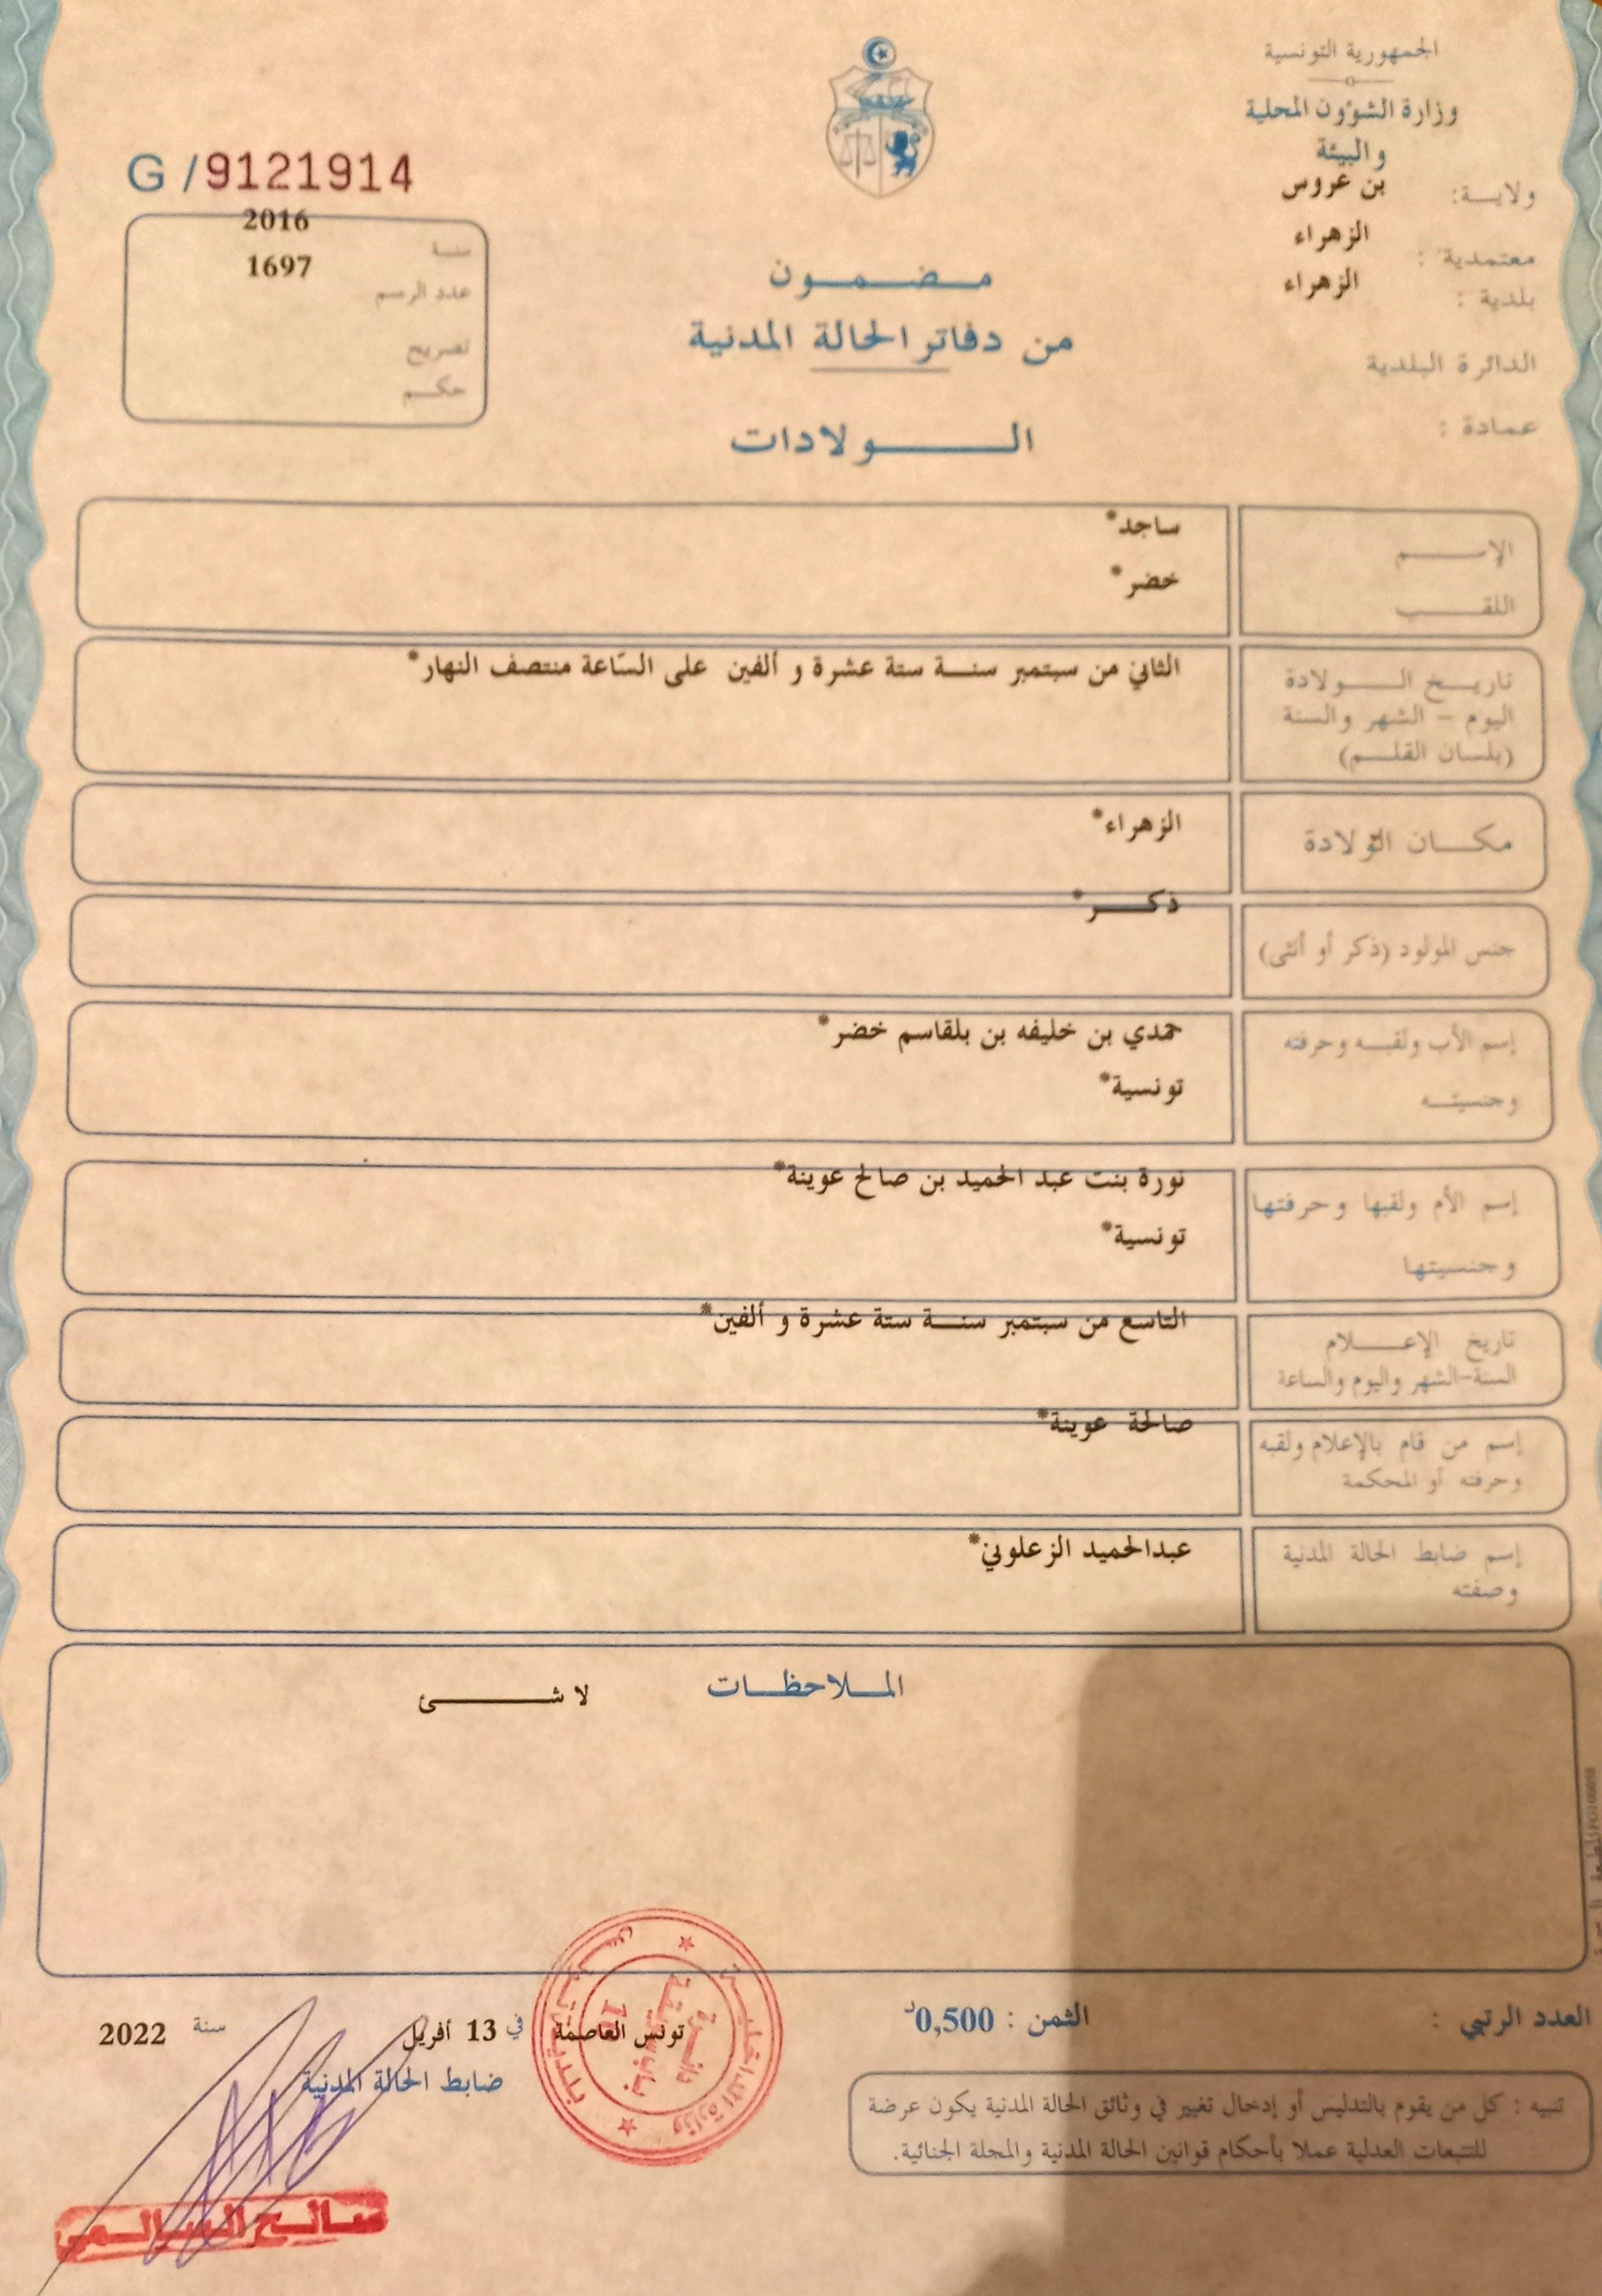 الجمهورية التونسية
وزارة الشؤون المحلية
والبيئة
ولايـــة: بن عروس
معتمدية : الزهراء
بلدية : الزهراء
الدائرة البلدية
عمادة :
G /9121914
سنــة 2016
عدد الرسم 1697
تصريح
حكــم
مــضــمــون
من دفاتر الحالة المدنية
الــــولادات
الإســــم ساجد*
اللقــــب خضر*
تاريــخ الــــولادة
اليوم - الشهر والسنة
(بلسان القلـــم)
الثاني من سبتمبر سنـــة ستة عشرة و ألفين على السّاعة منتصف النهار*
مكـــان الولادة الزهراء*
جنس المولود (ذكر أو أنثى) ذكـــر*
إسم الأب ولقبــه وحرفته حمدي بن خليفه بن بلقاسم خضر*
وجنسيتـــه تونسية*
إسم الأم ولقبها وحرفتها نورة بنت عبد الحميد بن صالح عوينة*
وجنسيتها تونسية*
تاريخ الإعــــلام التاسع من سبتمبر سنـــة ستة عشرة و ألفين*
السنة-الشهر واليوم والساعة
إسم من قام بالإعلام ولقبه صالحة عوينة*
وحرفته أو المحكمة
إسم ضابط الحالة المدنية عبدالحميد الزعلوني*
وصفته
المــلاحظــات
لا شـــــئ
العدد الرتبي :
الثمن : 0,500د
تونس العاصمة في 13 أفريل سنة 2022
ضابط الحالة المدنية
تنبيه : كل من يقوم بالتدليس أو إدخال تغيير في وثائق الحالة المدنية يكون عرضة
للتتبعات العدلية عملا بأحكام قوانين الحالة المدنية والمجلة الجنائية.